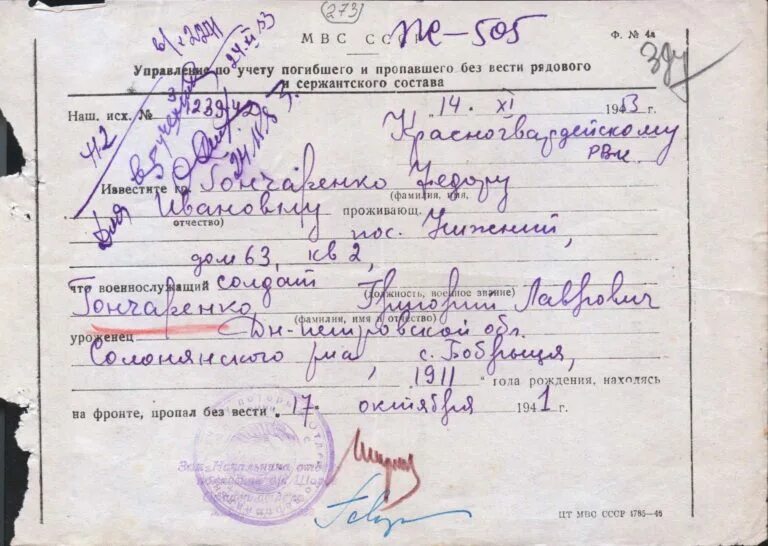 (273)
МВС СССР
Ж-505
Ф. № 4а
Управление по учету погибшего и пропавшего без вести рядового
и сержантского состава
Наш. исх. №
14. XI 1953 г.
Красногвардейскому
РВк.
Известите гр. Гончаренко Федору
(фамилия, имя,
Ивановичу проживающ.
отчество)
пос. Нижний,
дом 63, кв 2,
что военнослужащий солдат
(должность, военное звание)
Гончаренко Григорий Лаврович
(фамилия, имя и отчество)
уроженец Дн-петровской обл.
Солонянского р-на, с. Бобрыця,
1911 года рождения, находясь
на фронте, пропал без вести 17 октября 1941 г.
Зам. Начальника
ЦТ МВС СССР 1785—46